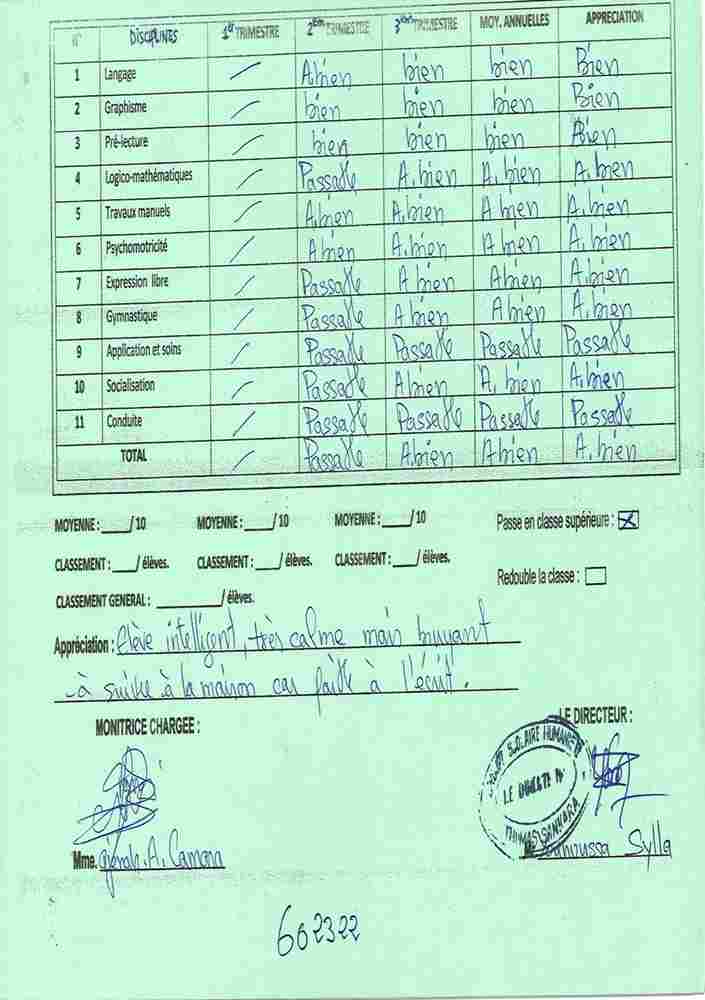 N° DISCIPLINES 1er TRIMESTRE 2ème TRIMESTRE 3ème TRIMESTRE MOY. ANNUELLES APPRECIATION
1 Langage / A bien bien bien Bien
2 Graphisme / bien bien bien Bien
3 Pré-lecture / bien bien bien Bien
4 Logico-mathématiques / Passable A. bien A. bien A. bien
5 Travaux manuels / A. bien A. bien A bien A. bien
6 Psychomotricité / A bien A. bien A bien A. bien
7 Expression libre / Passable A bien A bien A. bien
8 Gymnastique / Passable A bien A bien A. bien
9 Application et soins / Passable Passable Passable Passable
10 Socialisation / Passable A bien A. bien A. bien
11 Conduite / Passable Passable Passable Passable
TOTAL / Passable A. bien A bien A. bien
MOYENNE : ____/ 10 MOYENNE : ____/ 10 MOYENNE : ____/ 10 Passe en classe supérieure : ☒
CLASSEMENT : ___/ élèves. CLASSEMENT : ___/ élèves. CLASSEMENT : ___/ élèves.
Redouble la classe : ☐
CLASSEMENT GENERAL : ________/ élèves.
Appréciation : Elève intelligent, très calme mais bruyant
- à suivre à la maison car faible à l'écrit.
MONITRICE CHARGEE : LE DIRECTEUR :
SCOLAIRE
THOMAS SANKARA
Mme. A. Camara Sylla
602322